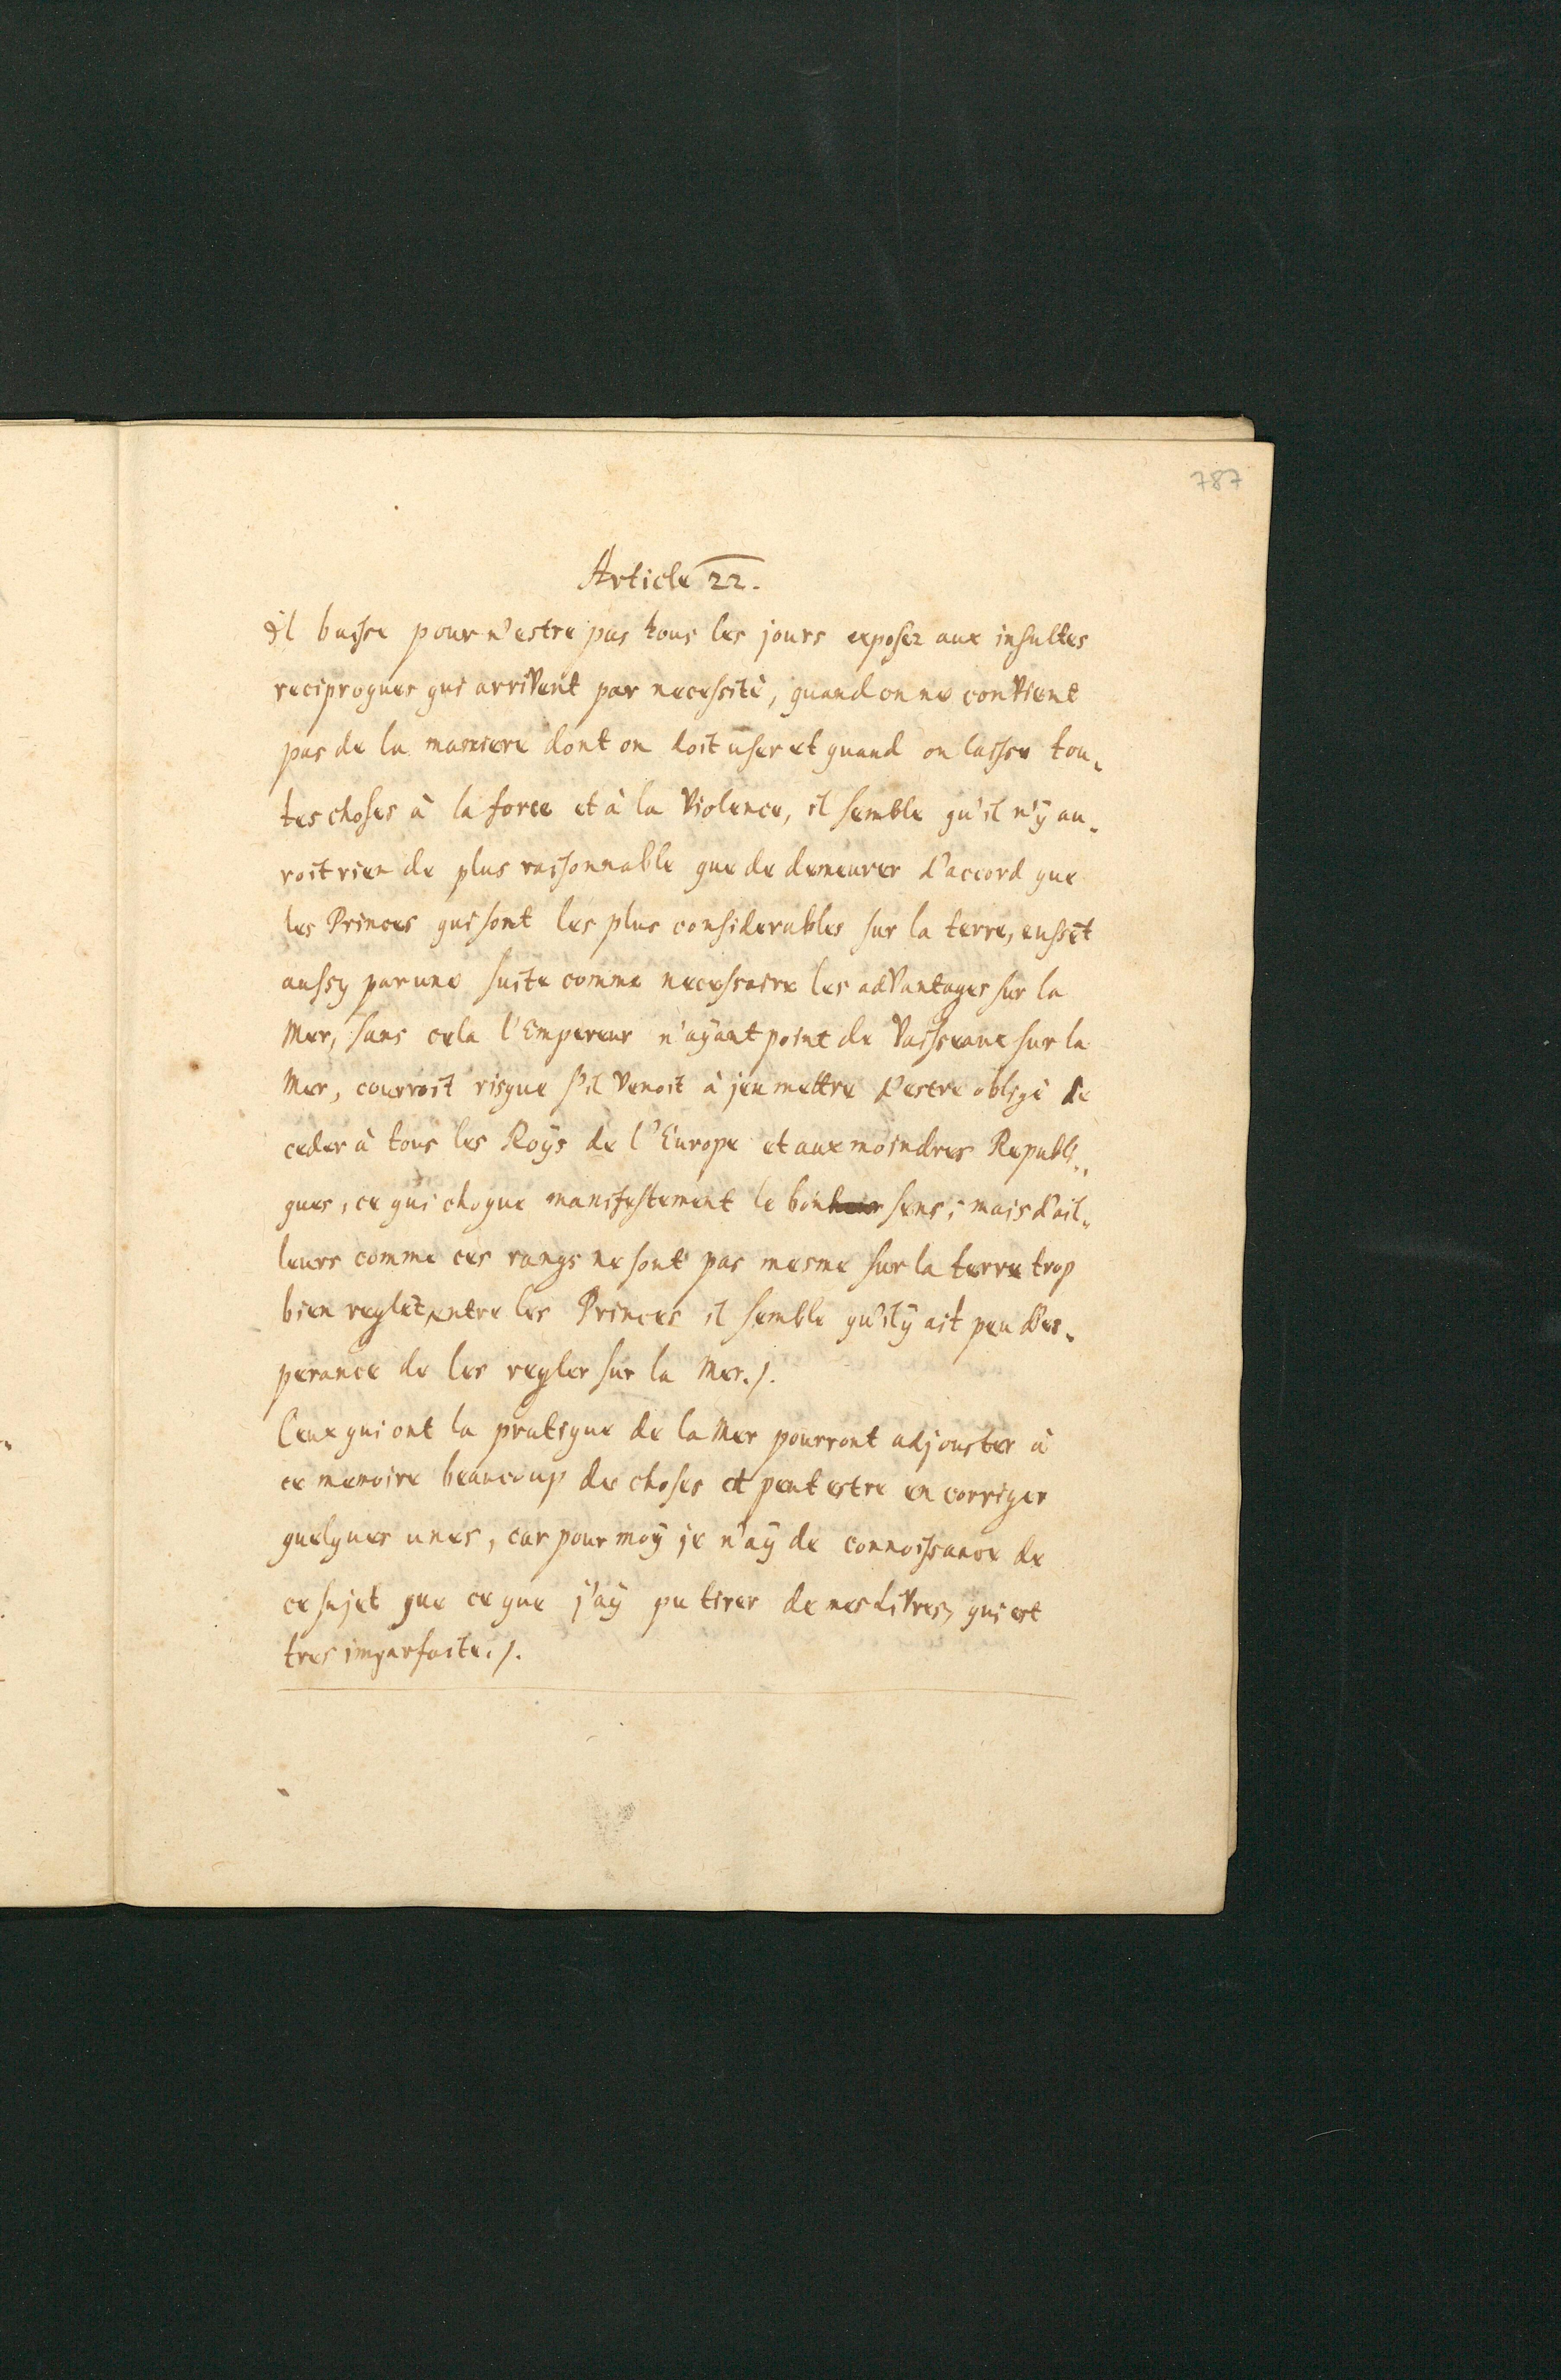 787
Article 22.
il baisse pour n'estre pas tous les jours exposez aux insultes
reciproques qui arrivent par necessité, quand on ne convient
pas de la maniere dont on doit user et quand on laisse tou-
tes choses à la force et à la Violence, il semble qu'il n'ÿ au-
roit rien de plus raisonnable que de demeurer d'accord que
les Princes qui sont les plus considerables sur la terre, eussēt
aussy par une suite comme necessaire les advantages sur la
Mer, sans cela l'Empereur n'aÿant point de Vaisseaux sur la
Mer, courroit risque s'il Venoit à jeu mettre d'estre obligé de
ceder à tous les Roÿs de l'Europe et aux moindres Republi-
ques, ce qui choque manifestement le bon sens; mais d'ail-
leurs comme ces rangs ne sont pas mesme sur la terre trop
bien reglet entre les Princes il semble qu'il ÿ ait peu d'es-
perance de les regler sur la Mer./.
Ceux qui ont la pratique de la Mer pourront adjouster à
ce memoire beaucoup de choses et peut estre en corriger
quelques unes, car pour moÿ je n'aÿ de connoissance de
ce sujet que ce que j'aÿ pu tirer de mes Livres, qui est
tres imparfaite./.